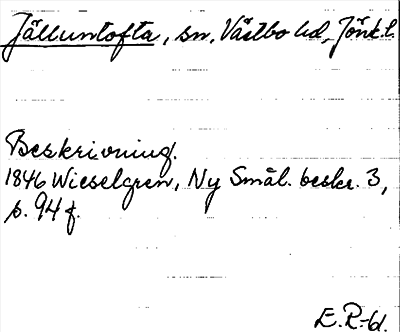 Jälluntofta, sn, Västbo hd, Jönk. l.
Beskrivning.
1846 Wieselgren, Ny Smål. beskr. 3,
s. 94 f.
E. R-d.